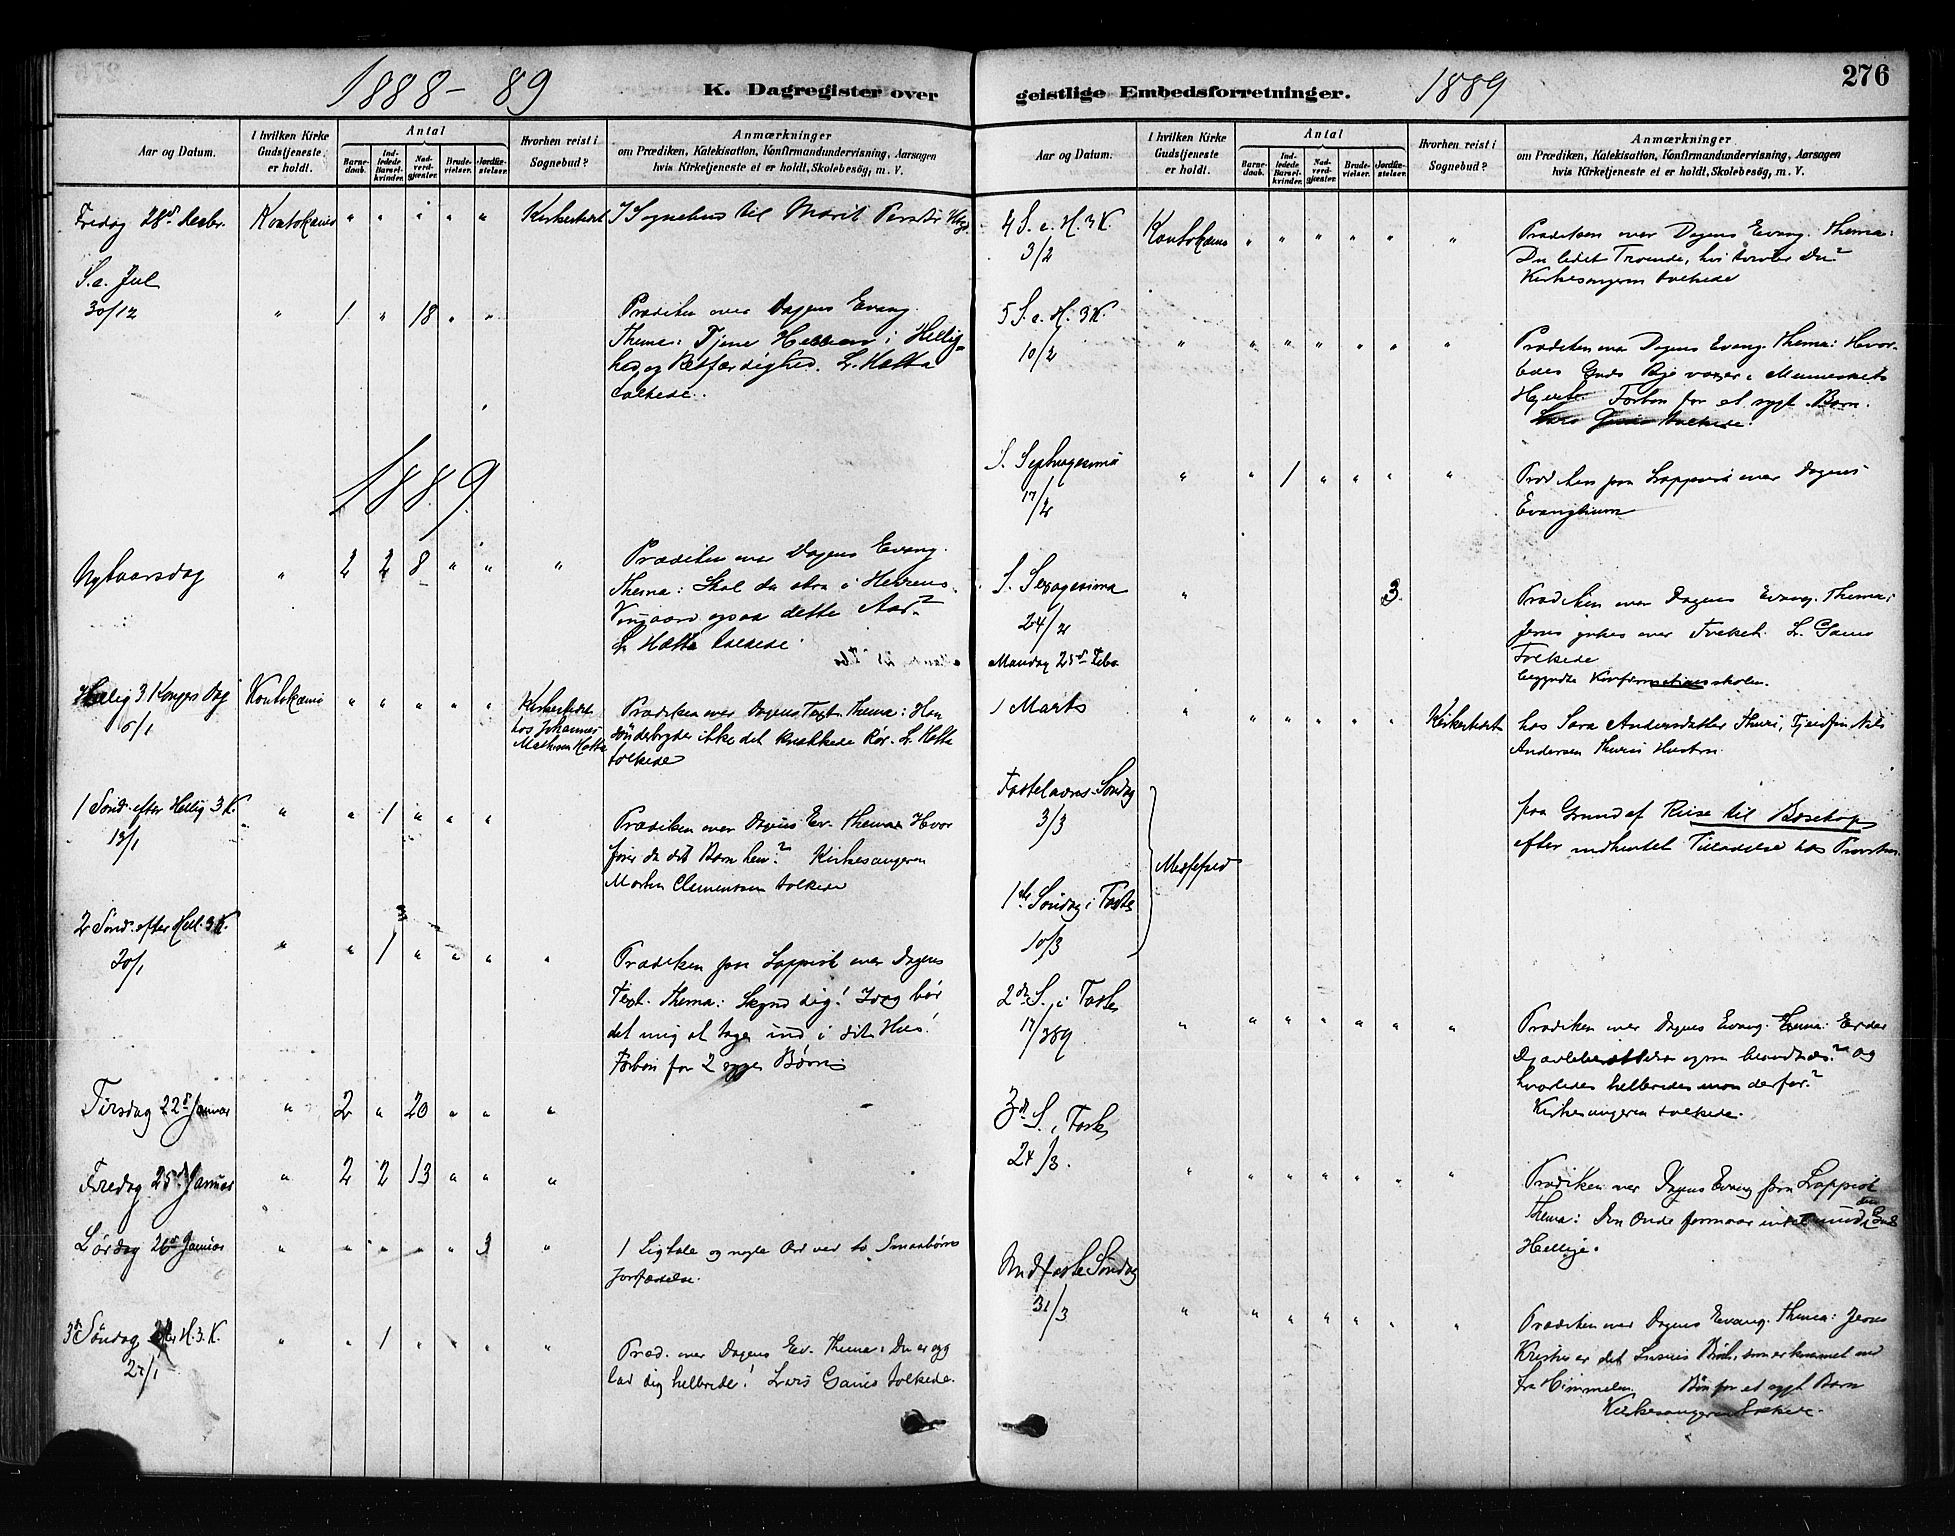 1888-89
K. Dagregister over
Aar og Datum.
I hvilken Kirke Gudstjeneste er holdt.
Antal
Barnedaab.
Indledede Barselkvinder.
Nadverdgjæster.
Brudevielser.
Jordfæstelser.
Hvorhen reist i Sognebud?
Anmærkninger
om Prædiken, Katekisation, Konfirmandundervisning, Aarsagen
hvis Kirketjeneste ei er holdt, Skolebesøg, m. V.
Fredag 28de Decbr. Koutokæino " " " " Kirkestedet I Sognebud til Marit
S. e. Jul
30/12 " 1 " 18 " " Prædiken over Dagens Evang.
Thema: Tjene Herren i Hellig-
hed og Retfærdighed. L. Hætta
tolkede.
1889.
Nytaarsdag " 2 2 8 " " " Prædiken over Dagens Evang.
Thema: Skal du staa i Herrens
Vingaard ogsaa dette Aar?
L. Hætta tolkede.
Hellig 3 Konges Dag Koutokæino " " " " " Kirkestedet Prædiken over Dagens Text. Thema: Han
6/1 hos Johannes sønderbryder ikke det knækkede Rør. L. Hætta
Mathisen Hætta tolkede
1 Sønd. efter Hellig 3 K. " " 1 " " " Prædiken over Dagens Ev. Thema Hvor
13/1 fører du dit Barn hen? Kirkesangeren
Morten Clementsen tolkede
2 Sønd. efter Hell. 3 K. " " 1 " " " " Prædiken paa Lappisk over Dagens
20/1 Text. Thema: Skynd dig! Idag bør
det mig at tage ind i dit Hus!
Forbøn for 2 syge Børn
Tirsdag 22de Januar " 2 " 20 " " "
Fredag 25de Januar " 2 2 13 " " "
Lørdag 26de Januar " " " " " 3 " 1 Ligtale og nogle Ord ved to Smaabørns
Jordfæstelse.
3die Søndag efter H. 3. K. " " 1 " " " "
27/1 Præd. over Dagens Ev. Thema: Du er syg
lad dig helbrede! Lars Gaino tolkede.
geistlige Embedsforretninger.
1889
276
Aar og Datum.
I hvilken Kirke Gudstjeneste er holdt.
Antal
Barnedaab.
Indledede Barselkvinder.
Nadverdgjæster.
Brudevielser.
Jordfæstelser.
Hvorhen reist i Sognebud?
Anmærkninger
om Prædiken, Katekisation, Konfirmandundervisning, Aarsagen
hvis Kirketjeneste ei er holdt, Skolebesøg, m. V.
4 S. e. H. 3 K. Koutokæino " " " " " " Prædiken over Dagens Evang. Thema:
3/2 Du lidet Troende, hvi tvivler Du?
Kirkesangeren tolkede
5 S. e. H. 3 K. " " " " " " "
10/2 Prædiken over Dagens Evang. Thema: Hvor-
ledes Guds Rige voxer i Menneskets
Hjerte. Forbøn for et sygt Barn.
tolkede.
S. Septuagesima " " 1 " " " " Prædiken paa Lappisk over Dagens
17/2 Evangelium
S. Sexagesima " 3. Prædiken over Dagens Evang. Thema:
24/2 Jesus ynkes over Folket. L. Gaino
Tolkede
Mandag 25de Febr. begyndte Konfirmationsskolen.
1 Marts " " " " " " Kirkestedet hos Sara Andersdatter Thuri, Fjeldfin Nils
Andersen Thuris Hustru.
Fastelavns Søndag paa Grund af Reise til Bosekop
3/3 efter indhentet Tilladelse hos Provsten.
Messefald
1ste Søndag i Faste
10/3
2den S. i Faste " " " " " " " Prædiken over Dagens Evang. Thema: Er der
17/3 89 Djævlebesættelse ogsaa iblandt os? og
hvorledes helbredes man derfor?
Kirkesangeren tolkede.
3die S. i Faste
24/3. " " " " " " " Prædiken over Dagens Evang. paa Lappisk
Thema: Den Onde formaar intet mod den Guds
Hellige.
Midfaste Søndag
31/3 " " " " " " " Prædiken over Dagens Evang. Thema: Jesus
Kristus er det Livsens Brød, som er kommet ned
fra Himmelen. Bøn for et sygt Barn
Kirkesangeren tolkede.